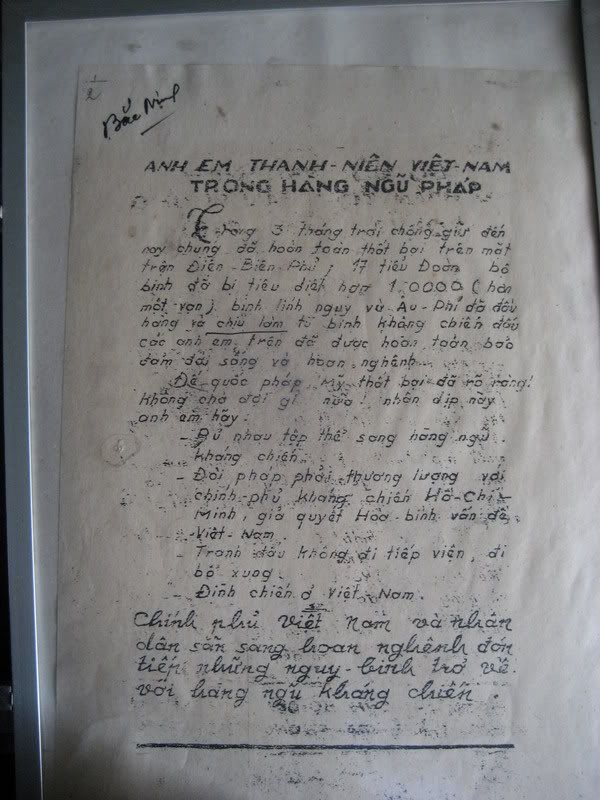 1/2
Bắc Ninh
ANH EM THANH-NIÊN VIỆT-NAM
TRONG HÀNG NGŨ PHÁP
Trong 3 tháng trời chống giữ đến
nay chúng đã hoàn toàn thất bại trên mặt
trận Điện-Biên-Phủ; 17 tiểu Đoàn bộ
binh đã bị tiêu diệt hơn 1.0000 (hơn
một vạn) binh lính ngụy và Âu-Phi đã đầu
hàng và chịu làm tù binh không chiến đấu
các anh em trên đã được hoàn toàn bảo
đảm đời sống và hoan nghênh
Đế quốc pháp Mỹ thất bại đã rõ ràng!
không chờ đợi gì nữa! nhân dịp này
anh em hãy:
- Rủ nhau tập thể sang hàng ngũ
kháng chiến
- Đòi pháp phải thương lượng với
chính-phủ kháng chiến Hồ-Chí-
Minh, giả quyết Hòa-bình vấn đề
Việt-Nam.
- Tranh đấu không đi tiếp viện, đi
bổ xung.
- Đình chiến ở Việt-Nam.
Chính phủ Việt Nam và nhân
dân sẵn sàng hoan nghênh đón
tiếp những ngụy-binh trở về
với hàng ngũ kháng chiến.